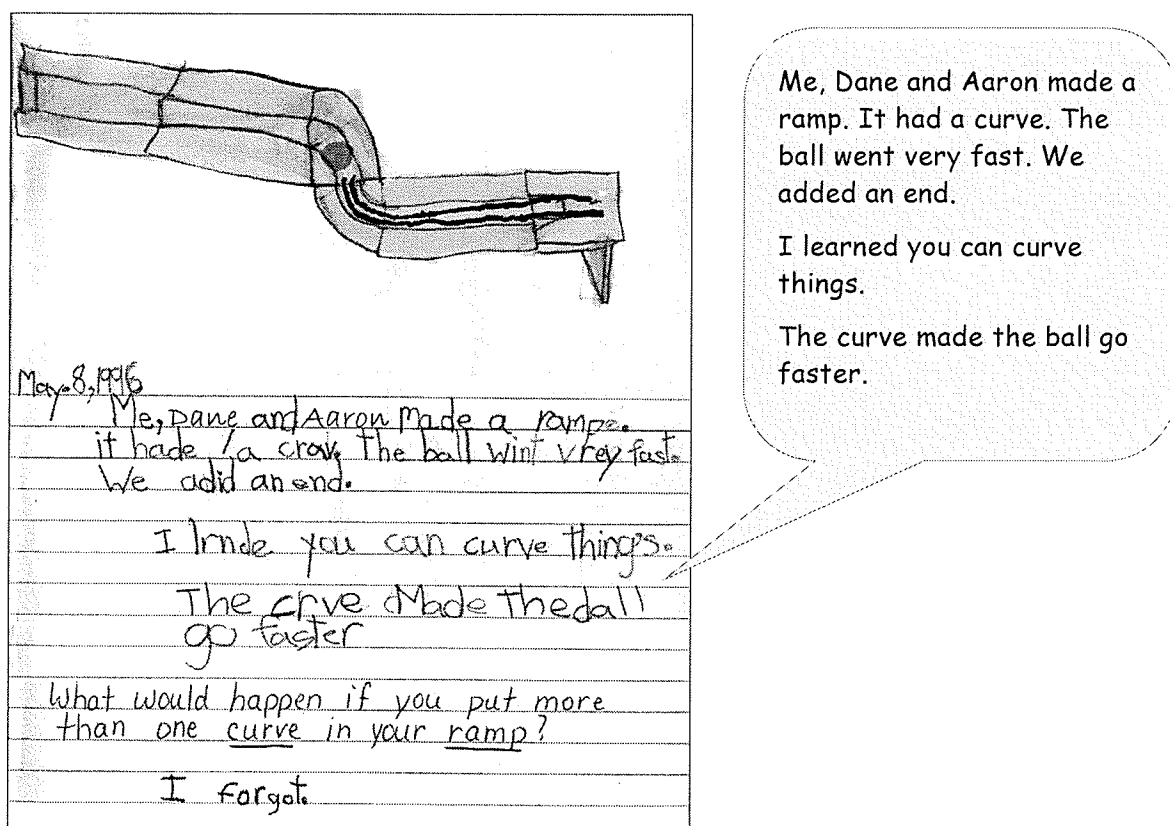 May. 8, 1996
Me, Dane and Aaron Made a ramp.
it hade a crav. The ball wint vrey fast.
We adid an end.
I lrnde you can curve things.
The crve Made The dall
go faster
What would happen if you put more
than one curve in your ramp?
I forgot.
Me, Dane and Aaron made a
ramp. It had a curve. The
ball went very fast. We
added an end.
I learned you can curve
things.
The curve made the ball go
faster.